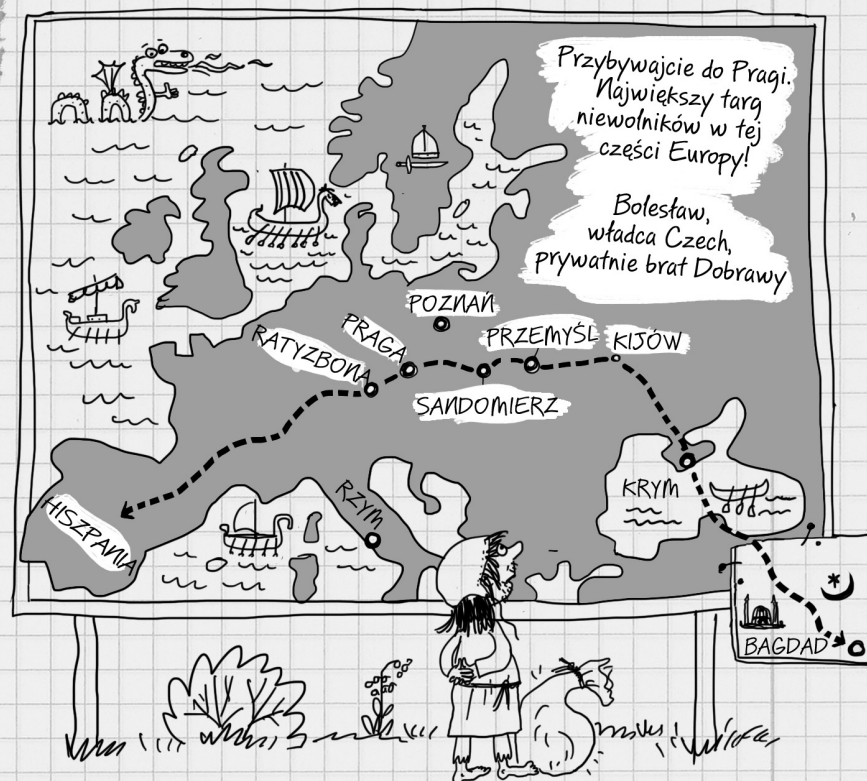 Przybywajcie do Pragi.
Największy targ
niewolników w tej
części Europy!
Bolesław,
władca Czech,
prywatnie brat Dobrawy
POZNAŃ
PRAGA
RATYZBONA
PRZEMYŚL
KIJÓW
SANDOMIERZ
KRYM
RZYM
HISZPANIA
BAGDAD